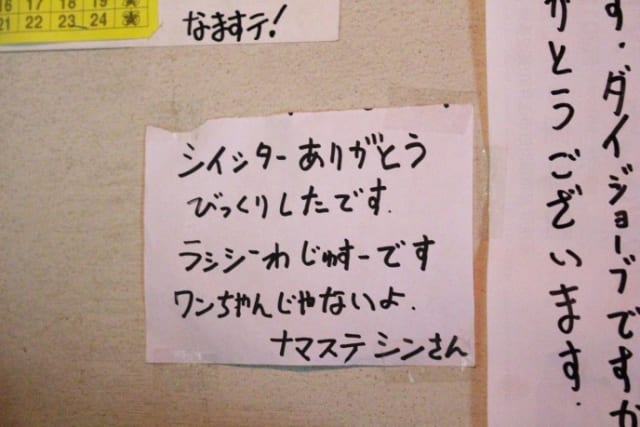 16 17 18 19
21 22 23 24
なますテ!
シイッターありがとう
びっくりしたです.
ラッシーわじゅすーです
ワンちゃんじゃないよ.
ナマステ シンさん
す.ダイジョーブですか
がとうございます.